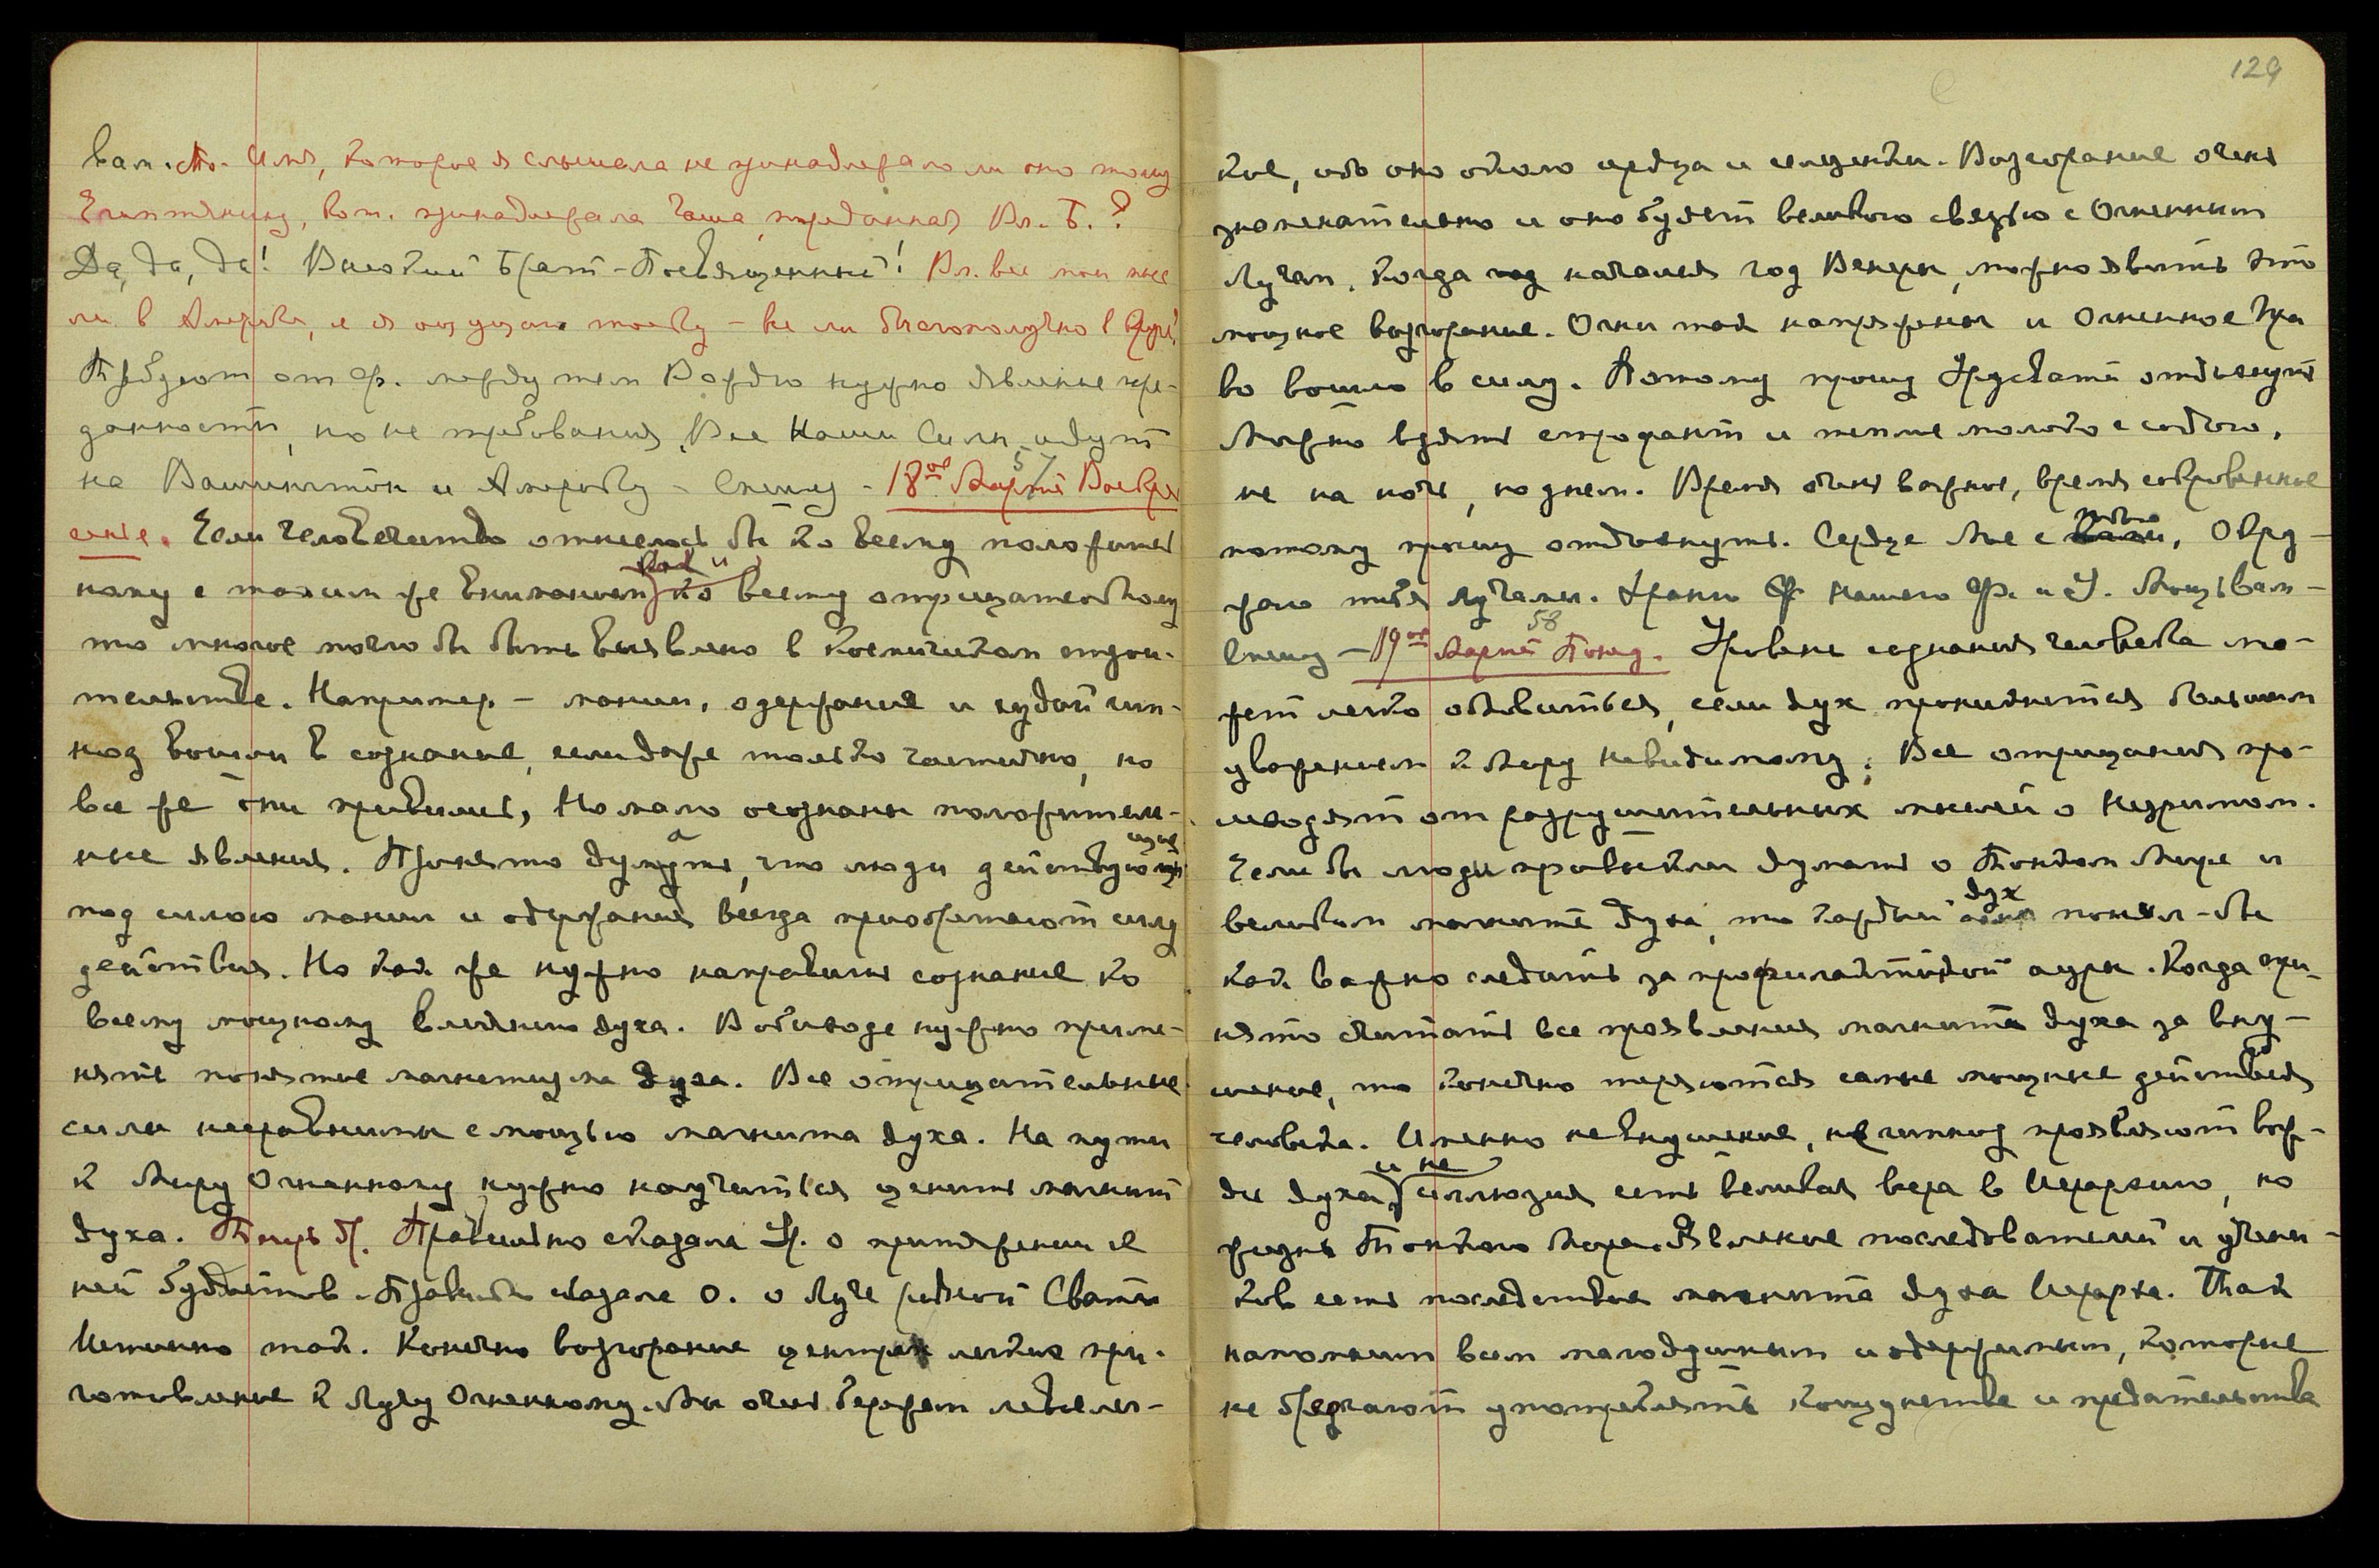 вам. Вл. Имя, которое я слышала не принадлежало ли оно тому
Египтянину, кот. принадлежала Чаша, преданная Вл. Б.?
Да, да, да! Высокий Брат-Посвященный! Вл. все мои мыс
ли в Америке, и я ощущаю тоску – все ли благополучно в
Требуют от Ф. между тем Вордю нужно явление пре-
данности, но не требования. Все Наши Силы идут
на Вашингтон и Америку – Спешу – 18ое Март Воскре
57
сенье. Если человечество отнеслось бы ко всему положитель
ному с таким же вниманием, как и ко всему отрицательному
то многое могло бы быть выявлено в космическом строи-
тельстве. Например – мании, одержание и худой гип-
ноз вошли в сознание, если даже только частично, но
все же они привились, Но мало осознаны положитель-
ные явления. Принято думать, что люди действующие
под силою мании и одержания всегда приобретают силу
действия. Но так же нужно направить сознание ко
всему мощному влиянию духа. В обиходе нужно приме-
нять понятие магнетизма духа. Все отрицательные
силы несравнимы с мощью магнита духа. На пути
к Миру Огненному нужно научиться ценить магнит
духа. Теперь др. Правильно сказала У. о притяжении ею
ней буддистов. Правильно сказала О. о Луче Сваты
Истинно так. Конечно возгорание центра легких при-
готовление к Лучу Огненному. Мы очень бережем
кое, ибо оно около сердца и селезенки. Возгорание очень
знаменательно и оно будет великою связью с Огненным
Лучам. Когда начался год Венеры, можно явить это
мощное возгорание. Огни так напряжены и Огненное Пра
во вошло в силу. Потому прошу Урусвати отдохнуть
Можно взять строфант и теплое молоко с содою,
не на ночь, но днем. Время очень важное, время сокровенное
потому прошу отдохнуть. Сердце Мое с тобою, Окру-
жаю тебя Лучами. Храни Нашего Ф. и У. Мощь вам –
58
Спешу – 19ое Март Понед. Уровень сознания человека мо-
жет легко обновиться, если дух проникнется большим
уважением к Миру Невидимому; Все отрицания про-
исходят от разрушительных мыслей о Незримом.
Если бы люди привыкли думать о Тонком Мире и
великом магните духа, то каждый дух понял-бы
как важно следить за профилактикой ауры. Когда при-
нято считать все проявления магнита духа за вну-
шение, то конечно теряются самые мощные действия
человека. Именно не внушение, не гипноз проявляют вож-
ди духа, и не иллюзия есть великая вера в Иерархию, но
жизнь Тонкого Мира. Явление последователей и учени-
ков есть последствие магнита духа Иерарха. Так
напомним всем малодушным и одержимым, которые
не брезгают употреблять кощунства и предательства
129